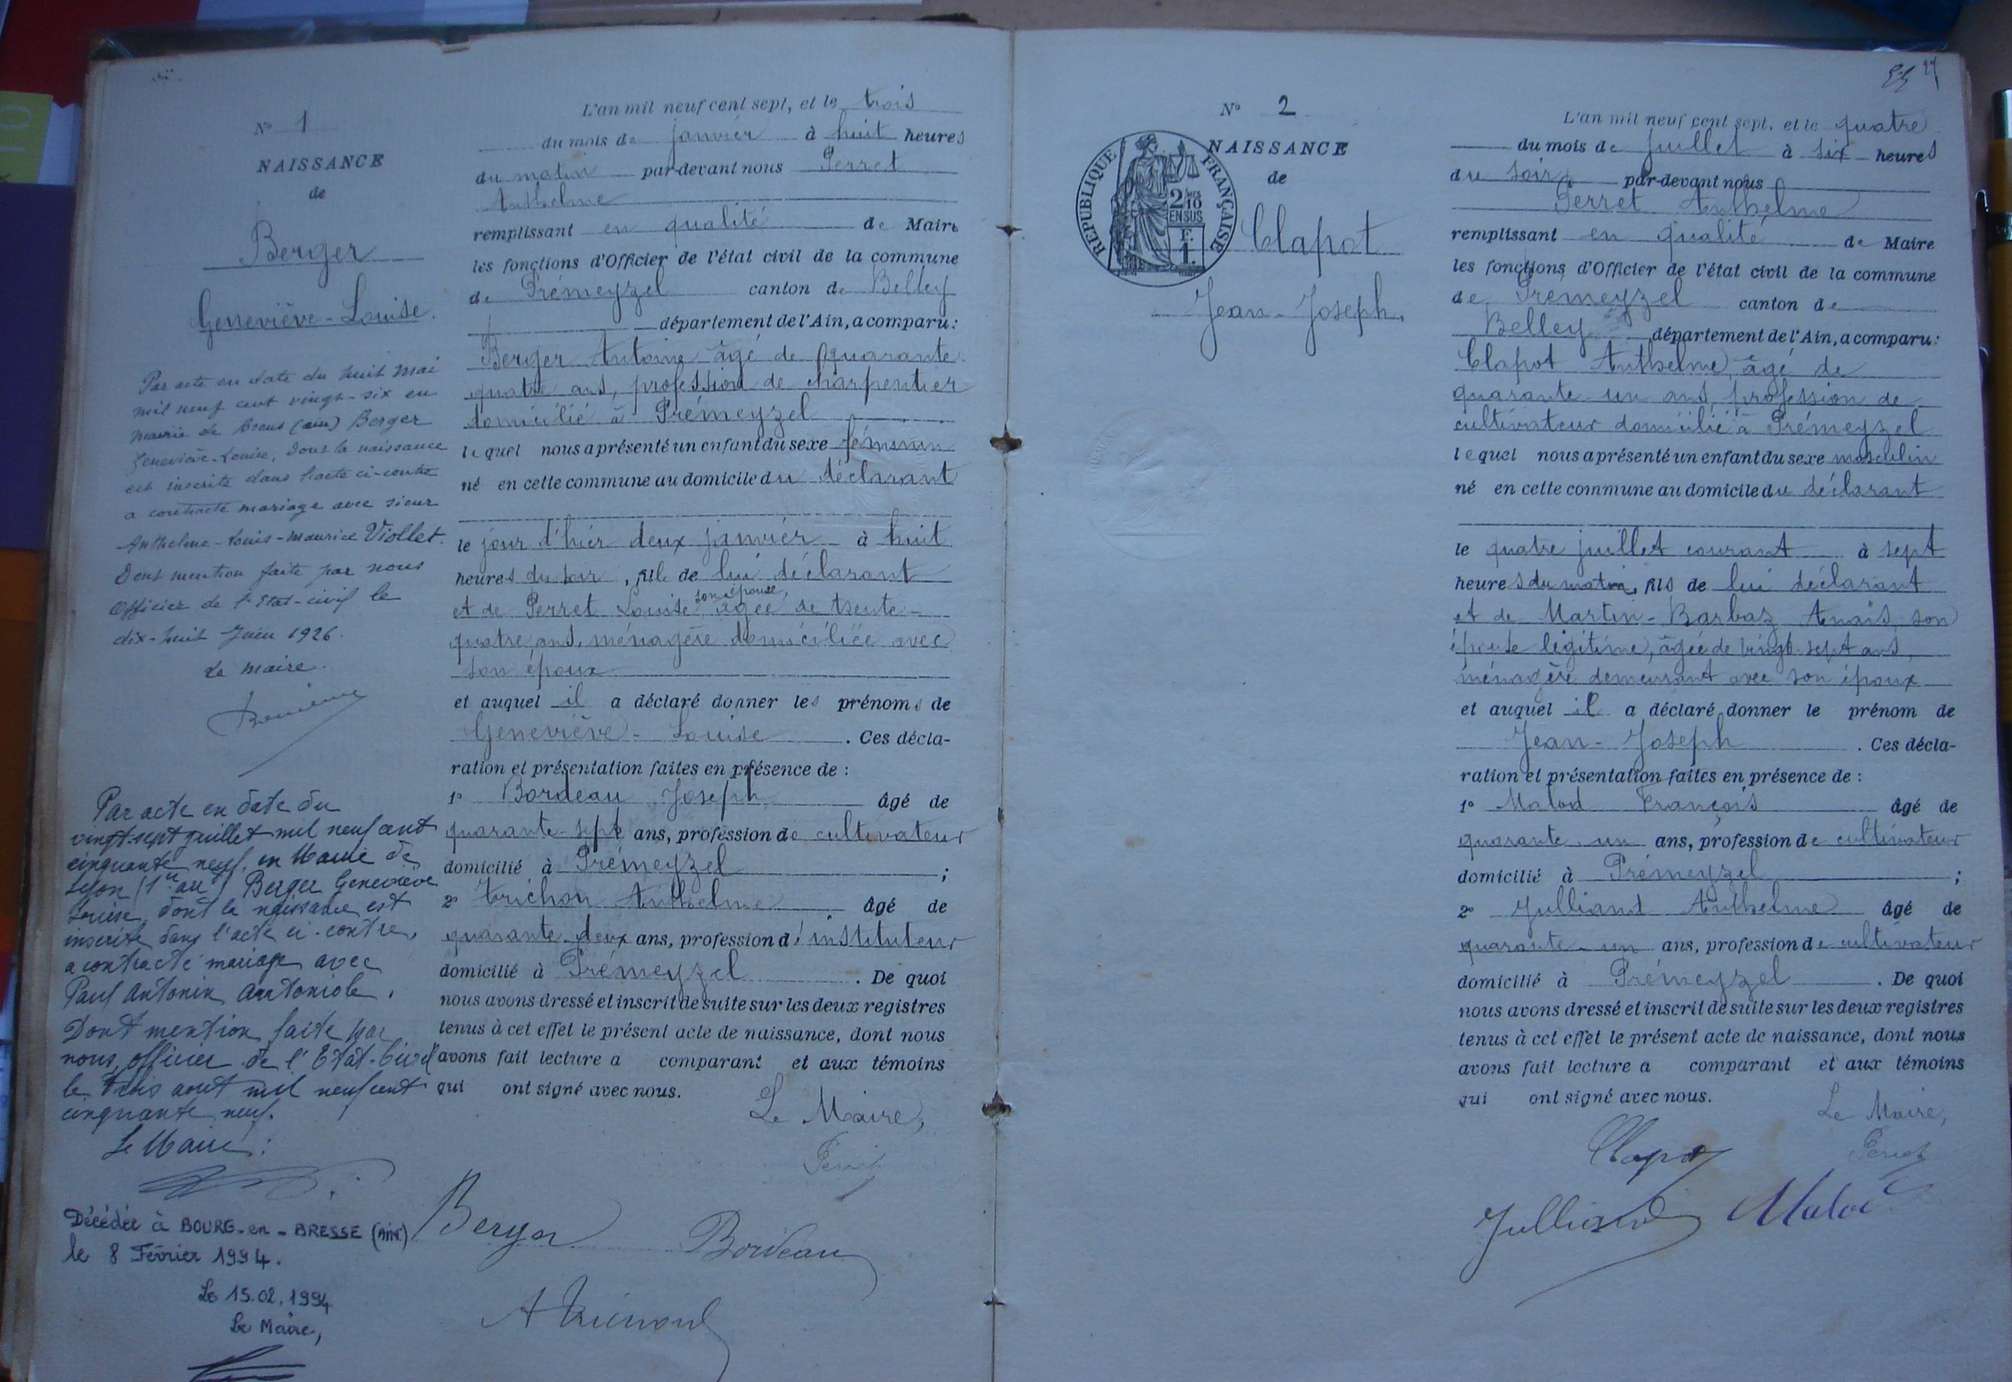 N° 1
NAISSANCE
de
Berger
Geneviève-Louise.
Par acte en date du huit mai
mil neuf cent vingt-six en
mairie de (ain) Berger
Geneviève-Louise, dont la naissance
est inscrite dans l'acte ci-contre
a contracté mariage avec sieur
Anthelme-Louis-Maurice Viollet.
Dont mention faite par nous
Officier de l'Etat-civil le
dix-huit Juin 1926.
Le maire.
Par acte en date du
vingt-sept juillet mil neuf cent
cinquante neuf, en Mairie de
Lyon (1er arrt) Berger Geneviève
Louise, dont la naissance est
inscrite dans l'acte ci-contre,
a contracté mariage avec
Paul Antonin Antoniole.
Dont mention faite par
nous, officier de l'Etat-Civil
le trois aout mil neuf cent
cinquante neuf.
Le Maire :
Décédée à BOURG-en-BRESSE (Ain)
le 8 Février 1994.
Le 15.02.1994
Le Maire,
L'an mil neuf cent sept, et le trois
du mois de janvier à huit heures
du matin par-devant nous Perret
Anthelme
remplissant en qualité de Maire
les fonctions d'Officier de l'état civil de la commune
de Prémeyzel canton de Belley
département de l'Ain, a comparu :
Berger Antoine âgé de quarante
quatre ans, profession de charpentier
domicilié à Prémeyzel
lequel nous a présenté un enfant du sexe féminin
né en cette commune au domicile du déclarant
le jour d'hier deux janvier à huit
heures du soir, fille de lui déclarant
et de Perret Louise son épouse, âgée de trente-
quatre ans, ménagère domiciliée avec
son époux
et auquel il a déclaré donner les prénoms de
Geneviève-Louise. Ces décla-
ration et présentation faites en présence de :
1° Bordeau Joseph âgé de
quarante-sept ans, profession de cultivateur
domicilié à Prémeyzel ;
2° Trichon Anthelme âgé de
quarante deux ans, profession d'instituteur
domicilié à Prémeyzel. De quoi
nous avons dressé et inscrit de suite sur les deux registres
tenus à cet effet le présent acte de naissance, dont nous
avons fait lecture a comparant et aux témoins
qui ont signé avec nous.
Le Maire,
Perret
Berger Bordeau
A Trichon
27
N° 2
NAISSANCE
de
REPUBLIQUE FRANÇAISE
2/10
EN SUS
F.
1.
Clapot
Jean-Joseph.
L'an mil neuf cent sept, et le quatre
du mois de Juillet à six heures
du soir par-devant nous
Perret Anthelme
remplissant en qualité de Maire
les fonctions d'Officier de l'état civil de la commune
de Prémeyzel canton de
Belley département de l'Ain, a comparu :
Clapot Anthelme, âgé de
quarante-un ans, profession de
cultivateur domicilié à Prémeyzel
lequel nous a présenté un enfant du sexe masculin
né en cette commune au domicile du déclarant
le quatre juillet courant à sept
heures du matin, fils de lui déclarant
et de Martin-Barbaz Anaïs, son
épouse légitime, âgée de vingt-sept ans,
ménagère demeurant avec son époux
et auquel il a déclaré donner le prénom de
Jean-Joseph. Ces décla-
ration et présentation faites en présence de :
1° Malod François âgé de
quarante-un ans, profession de cultivateur
domicilié à Prémeyzel ;
2° Julliand Anthelme âgé de
quarante-un ans, profession de cultivateur
domicilié à Prémeyzel. De quoi
nous avons dressé et inscrit de suite sur les deux registres
tenus à cet effet le présent acte de naissance, dont nous
avons fait lecture a comparant et aux témoins
qui ont signé avec nous.
Le Maire,
Clapot Perret
Julliand Malod